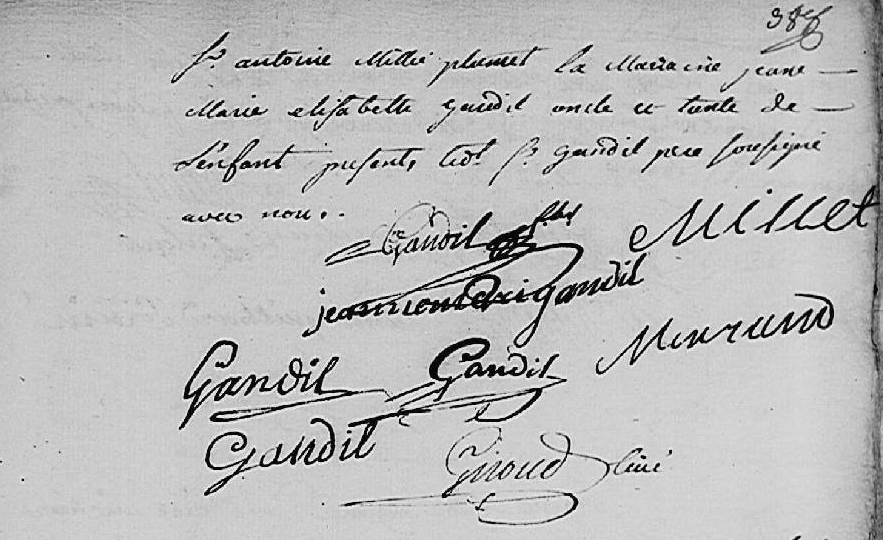 Sr. antoine Millet plumet la Marraine jeane
Marie elisabette Gandil oncle et tante de
L'enfant presents led. Sr. Gandil pere soussigné
avec nous..
Gandil fils Millet
Gandil
Gandil Gandil Morrand
Gandil
Giroud Curé